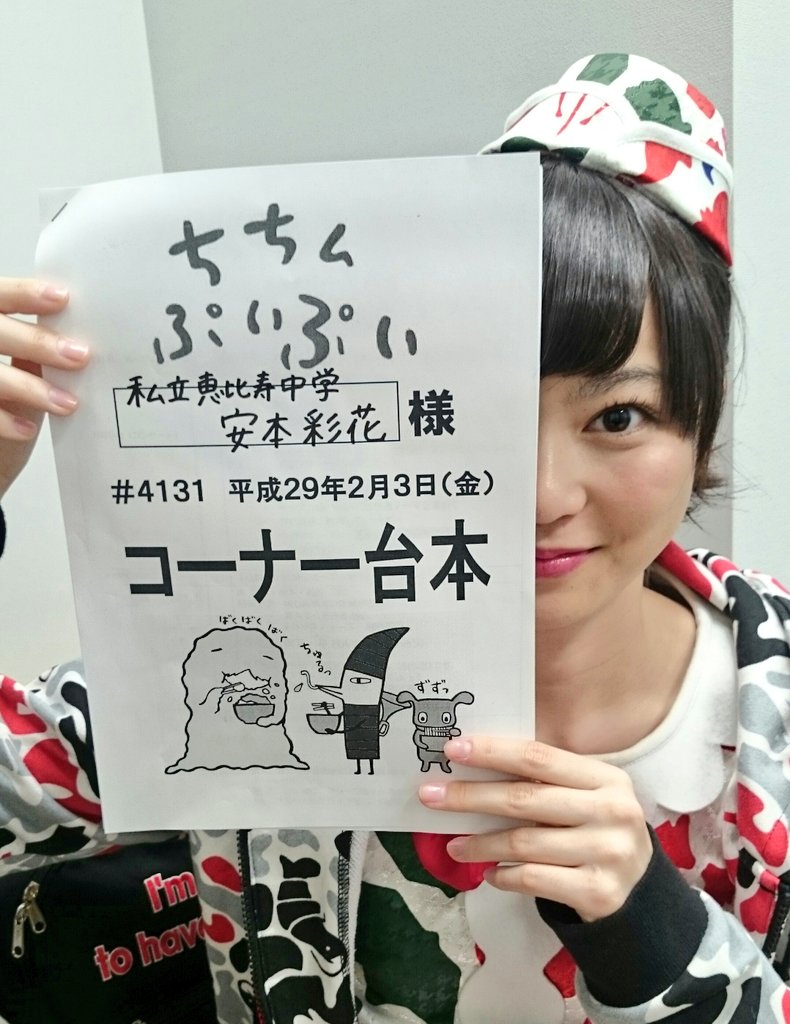 ちちんぷいぷい
私立恵比寿中学
安本彩花 様
#4131 平成29年2月3日(金)
コーナー台本
ばくばくばく
ちゅるっ
ずずっ
I'm
to have